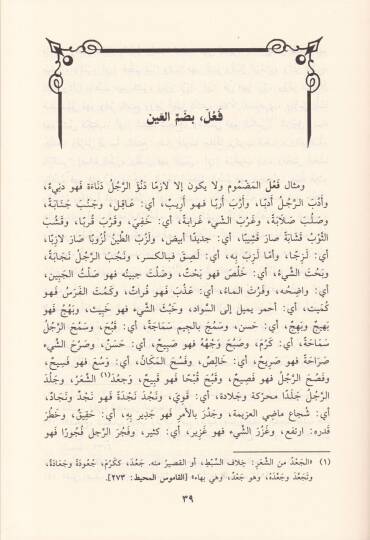 فَعُلَ، بضَمِّ العَين
ومثال فَعُلَ المَضْمُومِ ولا يكون إلا لازمًا دَنُؤَ الرَّجُلُ دَنَاءَة فهو دَنِيءٌ،
وأَدُبَ الرَّجُلُ أَدَبًا، وأَرُبَ أَرَبًا فهو أَرِيبٌ، أي: عَاقِل، وجَنُبَ جَنَابَة،
وصَلُبَ صَلَابَة، وغَرُبَ الشَّيء غَرابةً، أي: خَفِيَ، وقَرُبَ قُربًا، وقَشُبَ
الثَّوْبُ قَشَابَة صارَ قَشِيبًا، أي: جديدًا أبيض، ولَزُبَ الطِّينُ لُزُوبًا صَارَ لازِبًا،
أي: لَزِجًا، وأمَّا لَزِبَ بِهِ، أي: لَصِقَ فبالكسر، ونَجُبَ الرَّجُلُ نَجَابَةً،
وبَحُتَ الشَّيءُ، أي: خَلُصَ فهو بَحْتٌ، وصَلُتَ جبينُه فهو صَلْتُ الجَبِين،
أي: واضِحُه، وفَرُتَ الماءُ، أي: عَذُبَ فهو فُراتٌ، وكَمُتَ الفَرَسُ فهو
كُمَيت، أي: أحمر يميل إلى السَّواد، وخَبُثَ الشَّيء فهو خَبِيث، وبَهُجَ فهو
بَهيجٌ وبَهِجٌ، أي: حَسن، وسَمُجَ بالجيم سَمَاجَةً، أي: قَبُحَ، وسَمُحَ الرَّجُلُ
سَمَاحَةً، أي: كَرُمَ، وصَبُحَ وَجْهُهُ فهو صَبِيحٌ، أي: حَسُنَ، وصَرُحَ الشَّيء
صَرَاحَة فهو صَرِيحٌ، أي: خَالِصٌ، وفَسُحَ المَكَانُ، أي: وَسُعَ فهو فَسِيحٌ،
وفَصُحَ الرَّجُلُ فهو فَصِيحٌ، وقَبُحَ قُبْحًا فهو قَبِيحٌ، وجَعُدَ(١) الشَّعْرُ، وجَلُدَ
الرَّجُلُ جَلَدًا محرَّكة وجلادة، أي: قَوِيَ، ونَجُدَ نَجْدَة فهو نَجْدٌ ونَجَادٌ،
أي: شُجاع ماضِي العزيمة، وجَدُرَ بالأمر فهو جَدير بِهِ، أي: حَقِيقٌ، وخَطُرَ
قَدره: ارتفع، وغَزُرَ الشَّيء فهو غَزِير، أي: كثير، وفَجُرَ الرَّجل فُجُورًا فهو
(١) «الجَعْدُ من الشَّعَرِ: خِلافُ السَّبْطِ، أو القصيرُ منه. جَعُدَ، ككَرُمَ، جُعُودَةً وجَعَادَةً،
وتَجَعَّدَ وجَعَّدَهُ، وهو جَعْدٌ، وهي بهاء» [القاموس المحيط: ٢٧٣].
٣٩